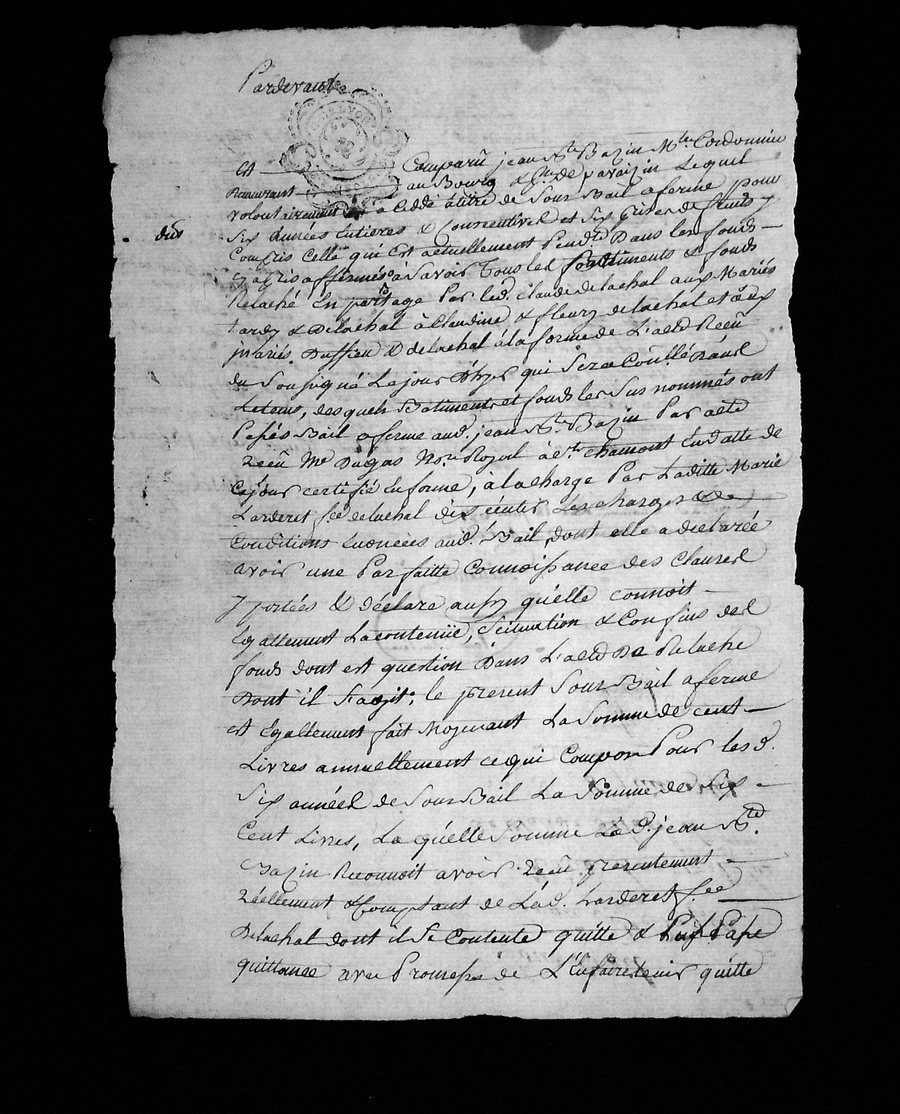 Pardevant
Et Comparû jean Bte Bazin Mtre Cordonnier
Demeurant au Bourg & de pavezin Lequel
volontairement a Ceddé àtitre de Sous Bail aferme pour
Six Années Entieres & Consecutivel et Six prises de fruits y
dus
Compris Celle qui Est actuellement Pendte Dans les fonds
affermés à Savoir Tous les Batiments & fonds
Relaché En partage Par led. Claude delachal aux Mariés
tardy & Delachal à Claudine & fleury delachal et aux
mariés. & delachal àlaforme de L'acte Reçû
du Soussigné Le jour D'hyer qui Sera Conllé Dans
Letems, desquels Batiments et fonds les Sus nommés ont
Passés Bail aferme aud. jean Bte Bazin Par acte
Reçû Me Dugas Nore Royal à St. chamont Endatte de
Cejour certifié Enforme, à lacharge Par Laditte Marie
Larderet fee delachal d'Exécuter Les charges &
Conditions Enoncées aud. Bail, dont elle a declarée
avoir une Parfaitte Connoissance des Clauses
y portées & déclare aussy qu'elle connoit
Egallement Lacontenüe, Scituation & Confins des
fonds dont est question Dans L'acte De Relache
Dont il S'agit; le present Sous Bail aferme
Et Egallement fait Moyenant La Somme de Cent
Livres annuellement ce qui Compose Pour les d.
Six annéés de Sous Bail La Somme de Six
Cent Livres, La qu'elle Somme Le d. jean Bte
Bazin Reconnoit avoir Reçû presentement
Réellement & Comptant de Lad. Larderet fee
Delachal dont il Se Contente quitte & Passe
quittance avec Promesse de L'Enfairetenir quitte